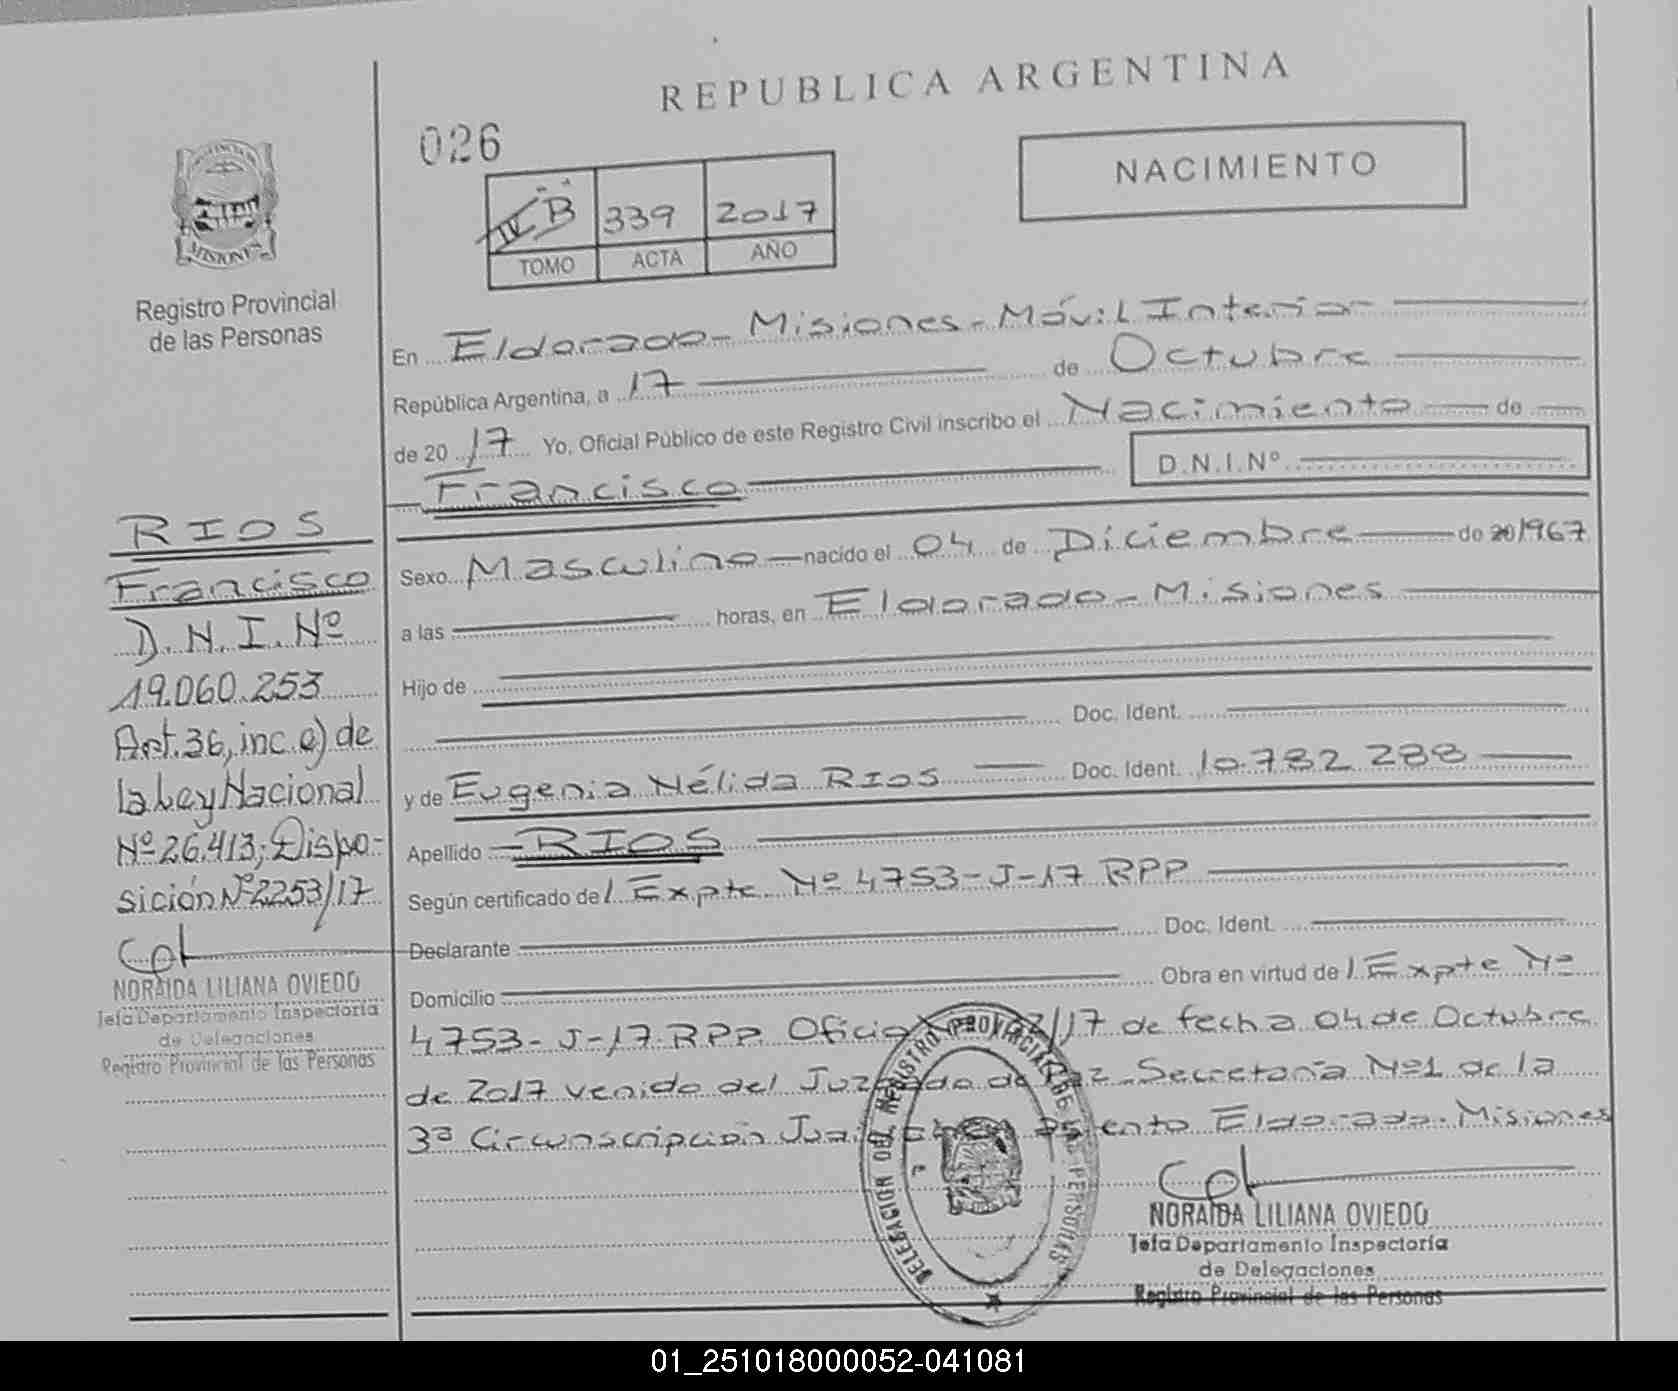 REPUBLICA ARGENTINA
026
NACIMIENTO
IV B 339 2017
TOMO ACTA AÑO
PROVINCIA DE
MISIONES
Registro Provincial
de las Personas
En Eldorado - Misiones - Móvil Interior
República Argentina, a 17 de Octubre
de 20 17 Yo, Oficial Público de este Registro Civil inscribo el Nacimiento de
Francisco D.N.I.Nº
Sexo Masculino nacido el 04 de Diciembre de 20 1967
a las horas, en Eldorado - Misiones
Hijo de
Doc. Ident.
y de Eugenia Nélida RIOS Doc. Ident. 10.782 288
Apellido RIOS
Según certificado de / Expte Nº 4753-J-17 RPP
Declarante Doc. Ident.
Domicilio Obra en virtud de / Expte Nº
4753-J-17 RPP Oficio /17 de fecha 04 de Octubre
de 2017 venido del Juzgado de Paz - Secretaria Nº1 de la
3ª Circunscripción asiento Eldorado - Misiones
RIOS
Francisco
D.N.I.Nº
19.060.253
Art. 36, inc. e) de
la Ley Nacional
Nº 26.413; Dispo-
sición Nº 2253/17
NORAIDA LILIANA OVIEDO
Jefa Departamento Inspectoria
de Delegaciones
Registro Provincial de las Personas
DELEGACION DEL REGISTRO PROVINCIAL DE LAS PERSONAS
NORAIDA LILIANA OVIEDO
Jefa Departamento Inspectoria
de Delegaciones
Registro Provincial de las Personas
01_251018000052-041081